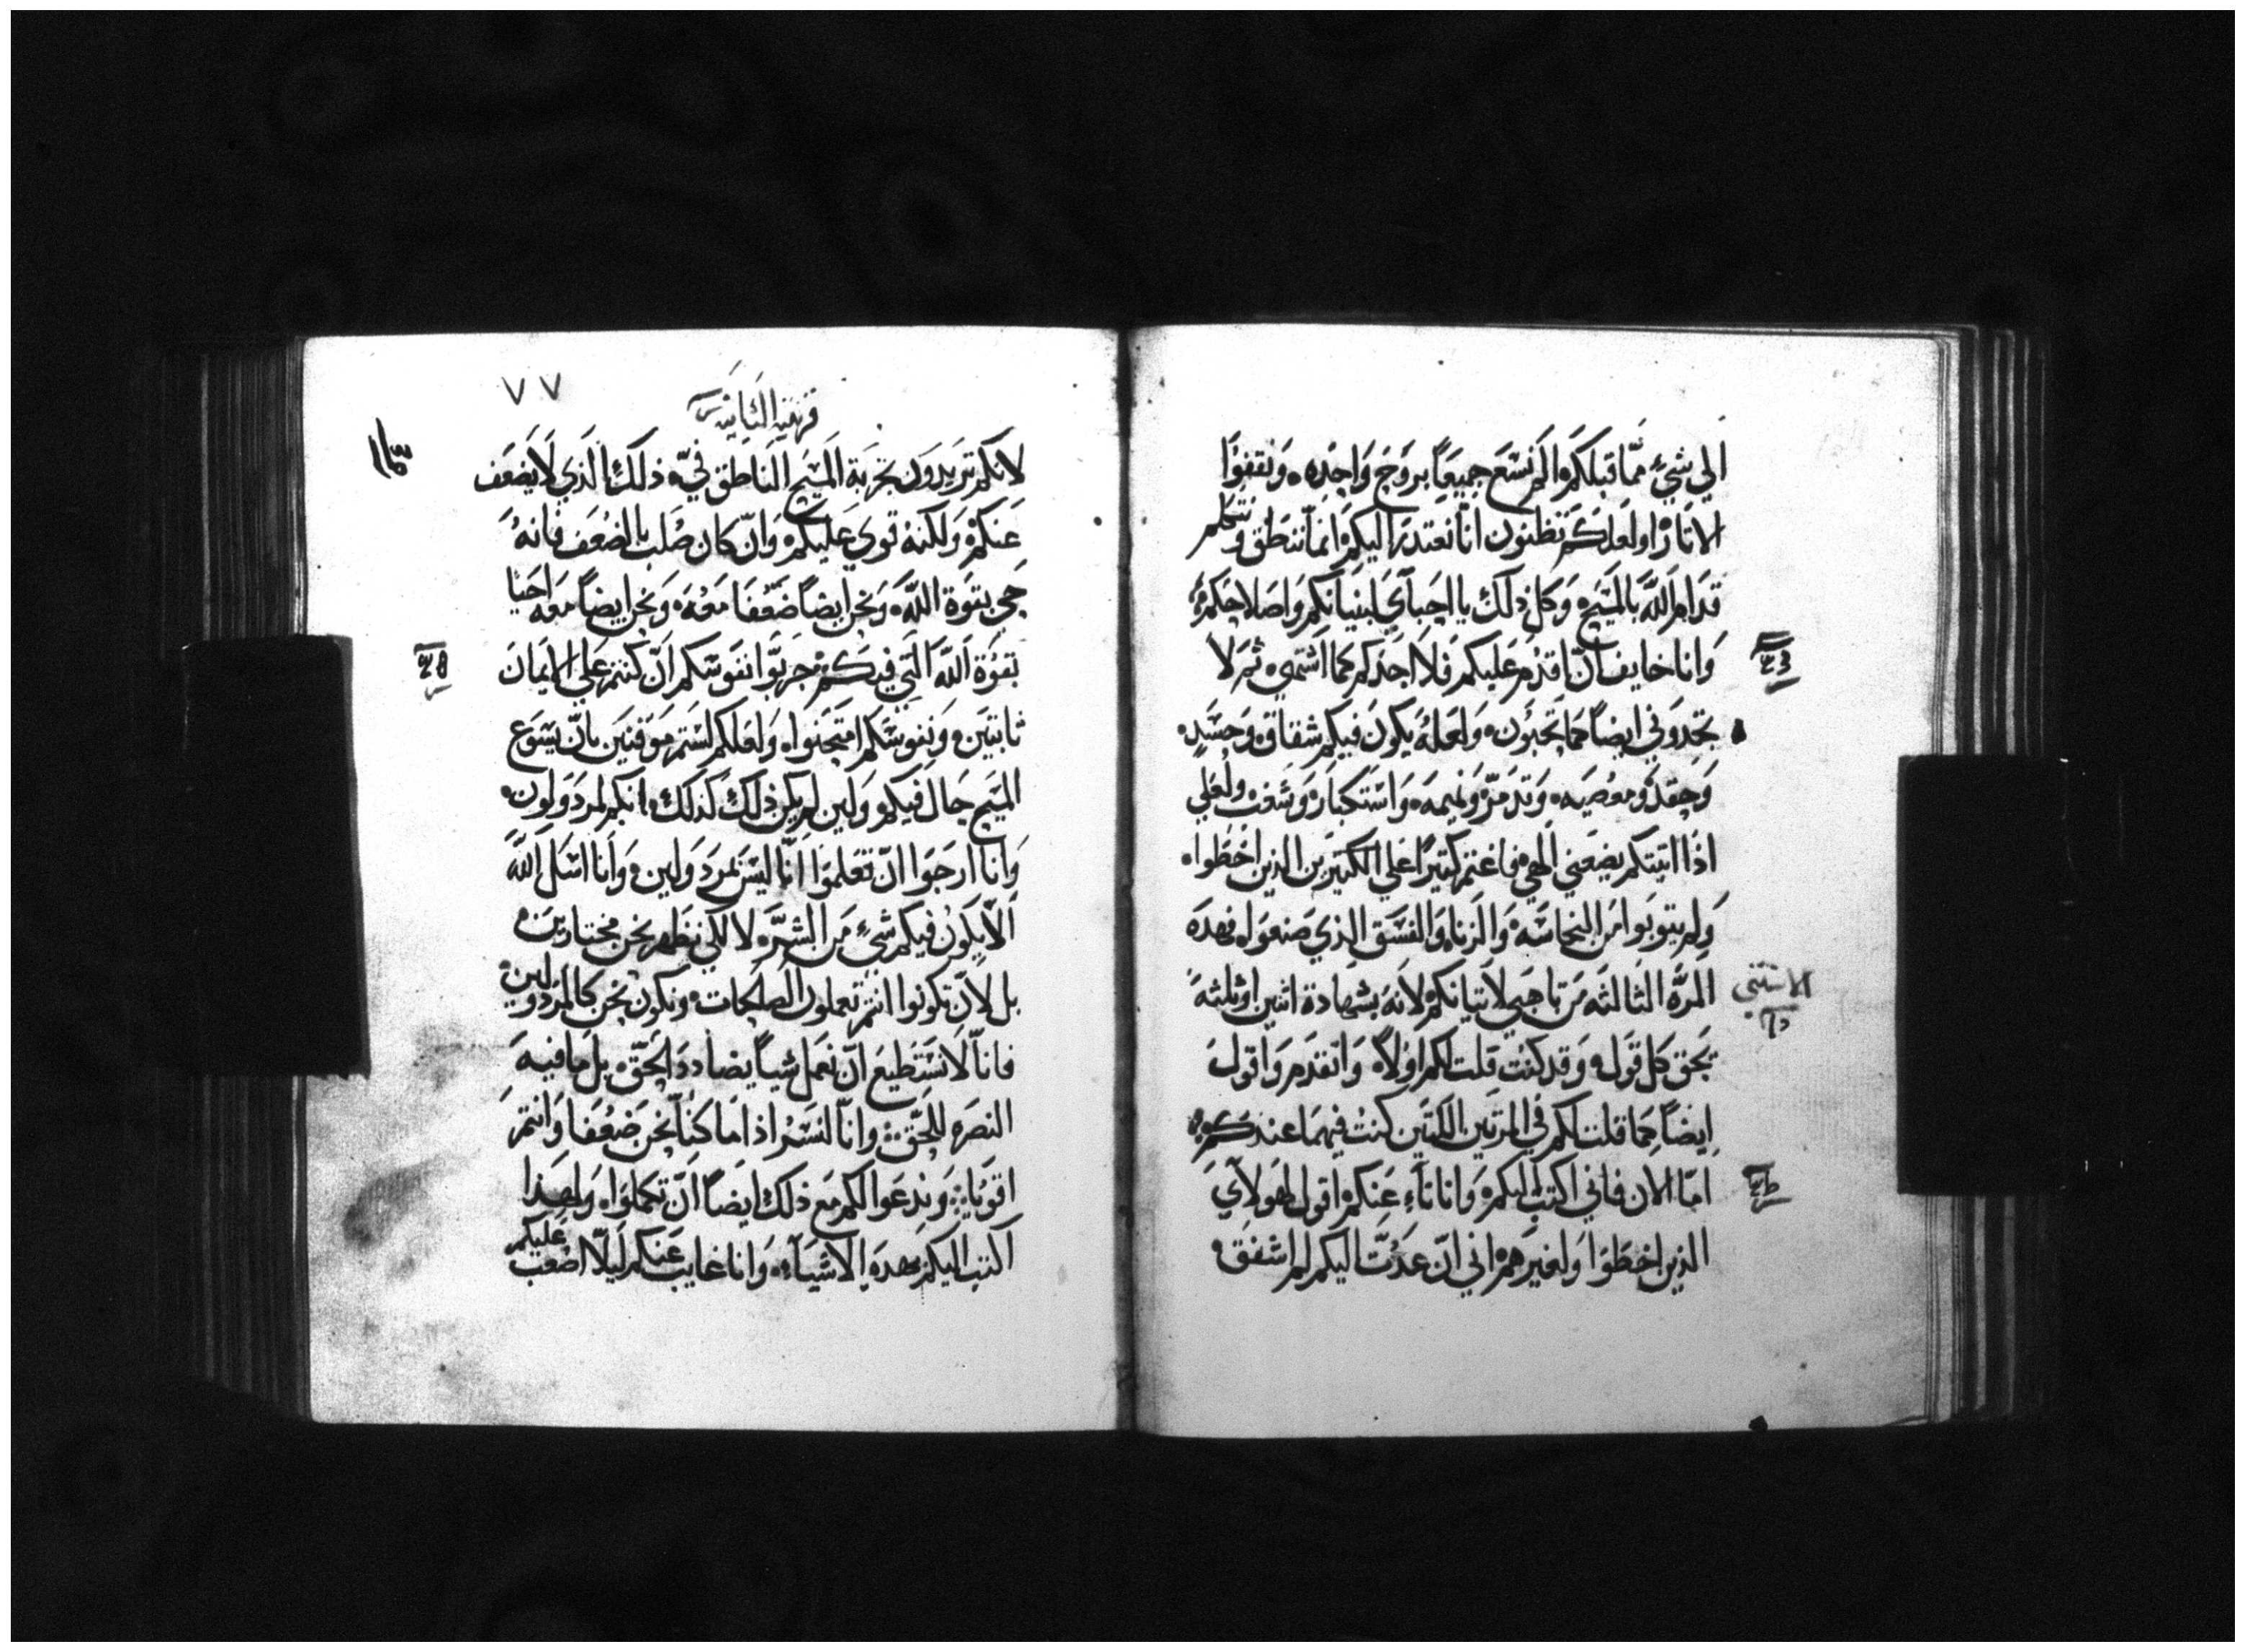 الي شيءٍ ممّا قبلكم الم نسع جميعاً بروح واحده ونقفوا
الاثار او لعلكم تظنون انّا نعتدر اليكم انما ننطق ونتكلم
قدام الله بالمسيح وكل ذلك يا احبآي لبنيانكم واصلاحكم
وانا خايف انّ اقدم عليكم فلا اجدكم كما اشتهي ثم لا
تجدوني ايضاً كما تحبون ولعله يكون فيكم شقاق وحسد
وحقد ومعصيه وتدمّر ونميمه واستكبار وشغب ولعلي
اذا اتيتكم يضعني الهي فاغتم كتيرًا علي الكتيرين الذين اخطوا
ولم يتوبوا من النجاسه والزناء والفسق الذي صنعوا فهده
الاستتني
المرّه الثالثه من تاهبي لاتيانكم لانه بشهادة اثنين او ثلثه
تحق كل قول وقد كنت قلت لكم اولاً واتقدم واقول
ايضاً كما قلت لكم في المرتين اللتين كنت فيهما عندكم
امّا الان فاني اكتب اليكم وانا نآء عنكم اقول لهولآي
الذين اخطوا ولغيرهم اني انّ عدت اليكم لم اشفق
٧٧
قرنتيه الثانيه
لانكم تريدون تجربة المسيح الناطق فيّ ذلك الذي لا يضعف
عنكم ولكنه قوي عليكم وانّ كان صلب بالضعف فانه
حي بقوة الله ونحن ايضاً ضعفا معه ونحن ايضاً معه احيا
بقوة الله التي فيكم جربوا انفوسكم انّ كنتم علي الايمان
ثابتين ونفوسكم امتحنوا ولعلكم لستم موقنين بانّ يسوع
المسيح حال فيكم ولين لم يكن ذلك كذلك انكم لمردولون
وانا ارجوا انّ تعلموا انّا ليس بمردولين وانا اسل الله
الّا يكون فيكم شيءٍ من الشرّه لا لكي نظهر نحن مختارين
بل لانّ تكونوا انتم تعملون الصالحات ونكون نحن كالمردولين
فانّا لا نستطيع انّ نعمل شياً يضادد الحقّ بل ما فيه
النصره للحقّ وانّا لنسر اذا ما كنّا نحن ضعفا وانتم
اقويا وندعوا لكم مع ذلك ايضاً انّ تكملوا ولهذا
اكتب اليكم بهده الاشيآء وانا غايب عنكم ليلّا اصعب عليكم